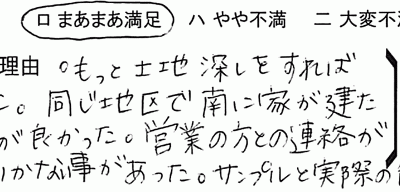 ロ まあまあ満足 ハ やや不満 ニ 大変不
理由 ○もっと土地深しをすれば
た。同じ地区で南に家が建た
が良かった。営業の方との連絡が
りかない事があった。サンプルと実際の